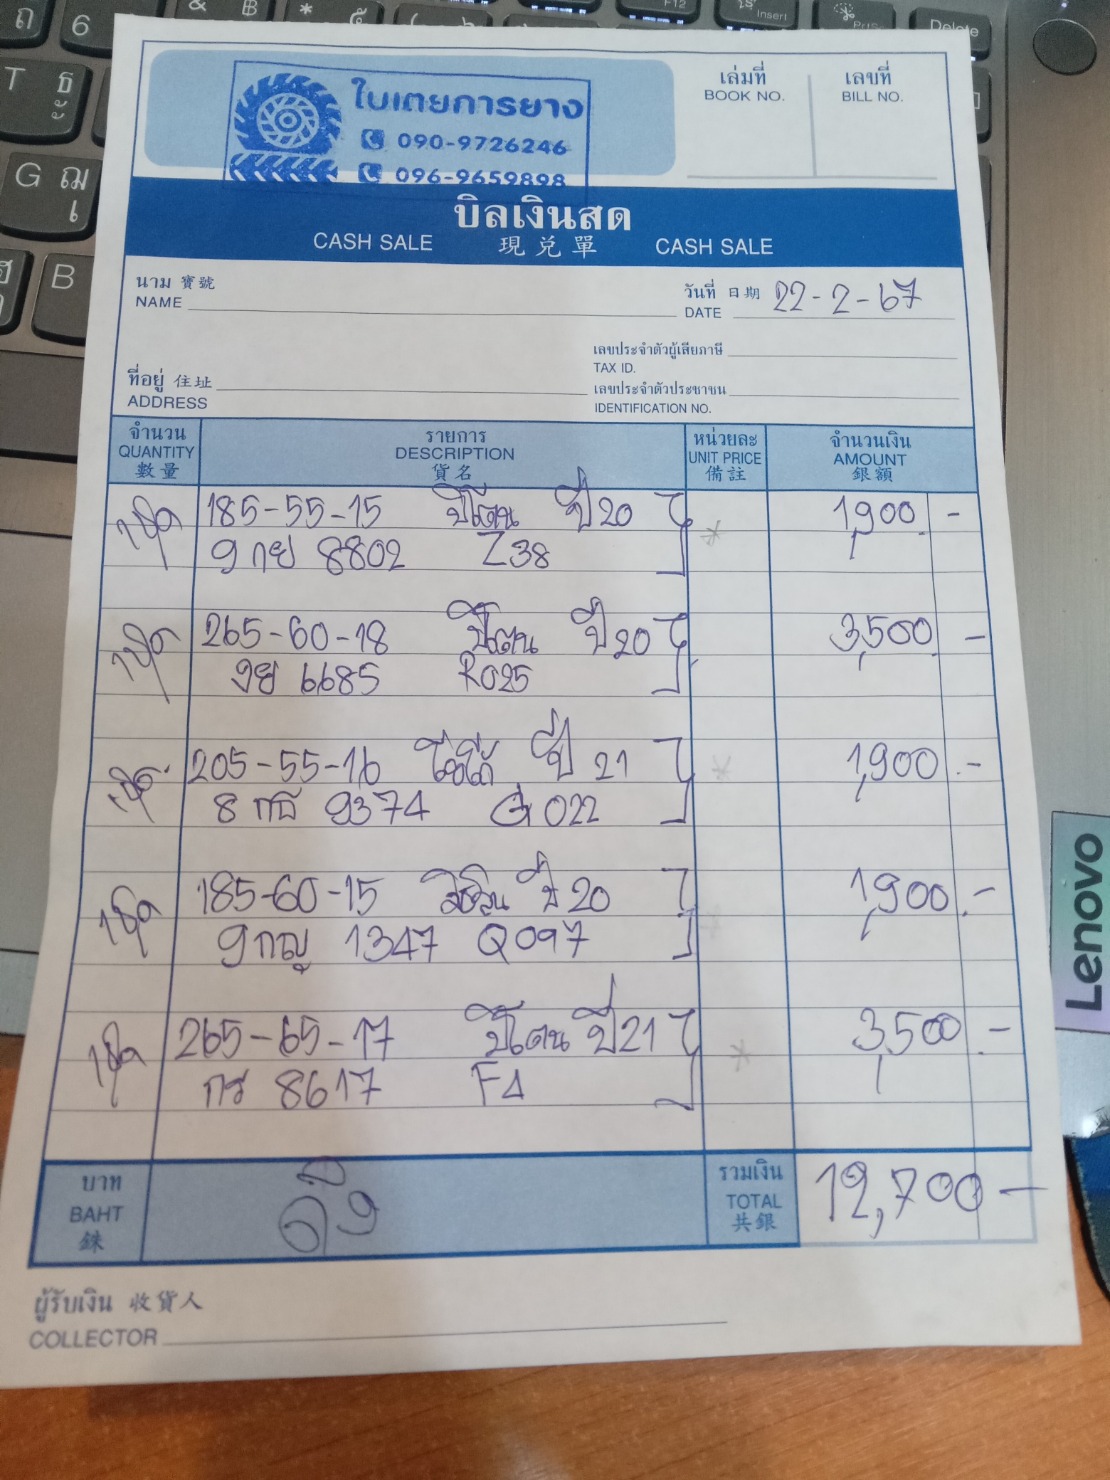 ใบเตยการยาง
090-9726246
096-9659898
เล่มที่
BOOK NO.
เลขที่
BILL NO.
บิลเงินสด
CASH SALE 現兌單 CASH SALE
นาม 寶號
NAME
วันที่ 日期 22-2-67
DATE
เลขประจำตัวผู้เสียภาษี
TAX ID.
ที่อยู่ 住址
ADDRESS
เลขประจำตัวประชาชน
IDENTIFICATION NO.
จำนวน
QUANTITY
數量
รายการ
DESCRIPTION
貨名
หน่วยละ
UNIT PRICE
備註
จำนวนเงิน
AMOUNT
銀額
1ชุด 185-55-15 ปี20 1,900 -
9 กย 8802 Z38
1ชุด 265-60-18 ปี20 3,500 -
6685 R025
1ชุด 205-55-16 ปี 21 1,900 -
8 9374 G 022
1ชุด 185-60-15 ปี 20 1,900 -
9 กญ 1347 Q097
1ชุด 265-65-17 ปี21 3,500 -
8617 F4
บาท
BAHT
銖
รวมเงิน
TOTAL
共銀
12,700 -
ผู้รับเงิน 收貨人
COLLECTOR
Lenovo